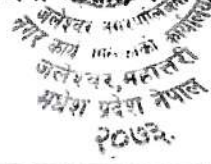 जलेश्वर नगरपालिका
नगर कार्य कार्यालय
जलेश्वर, महोत्तरी
मधेश प्रदेश नेपाल
२०७३.